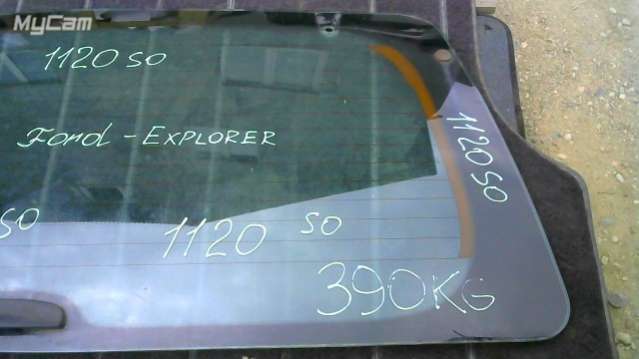 MyCam
1120 SO
Ford - EXPLORER
1120 SO
SO
1120 SO
390KG